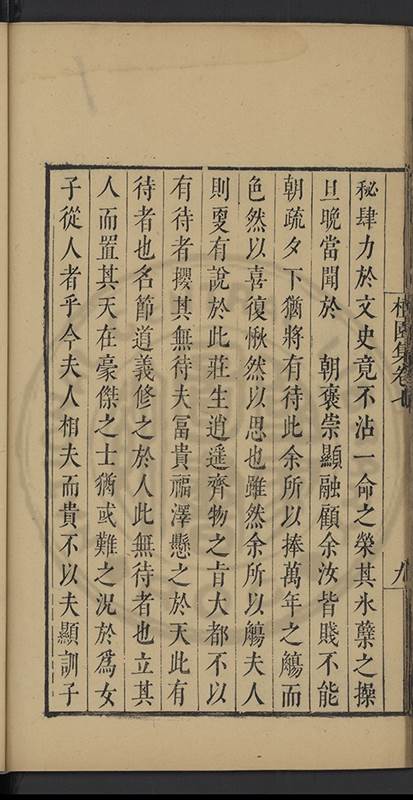 秘肆力於文史竟不沾一命之榮其氷蘖之操
旦晩當聞於　朝褒崇顯融顧余汝皆賤不能
朝疏夕下猶將有待此余所以捧萬年之觴而
色然以喜復愀然以思也雖然余所以觴夫人
則更有說於此莊生逍遙齊物之旨大都不以
有待者攖其無待夫冨貴福澤懸之於天此有
待者也名節道義修之於人此無待者也立其
人而置其天在豪傑之士猶或難之况於爲女
子從人者乎今夫人相夫而貴不以夫顯訓子